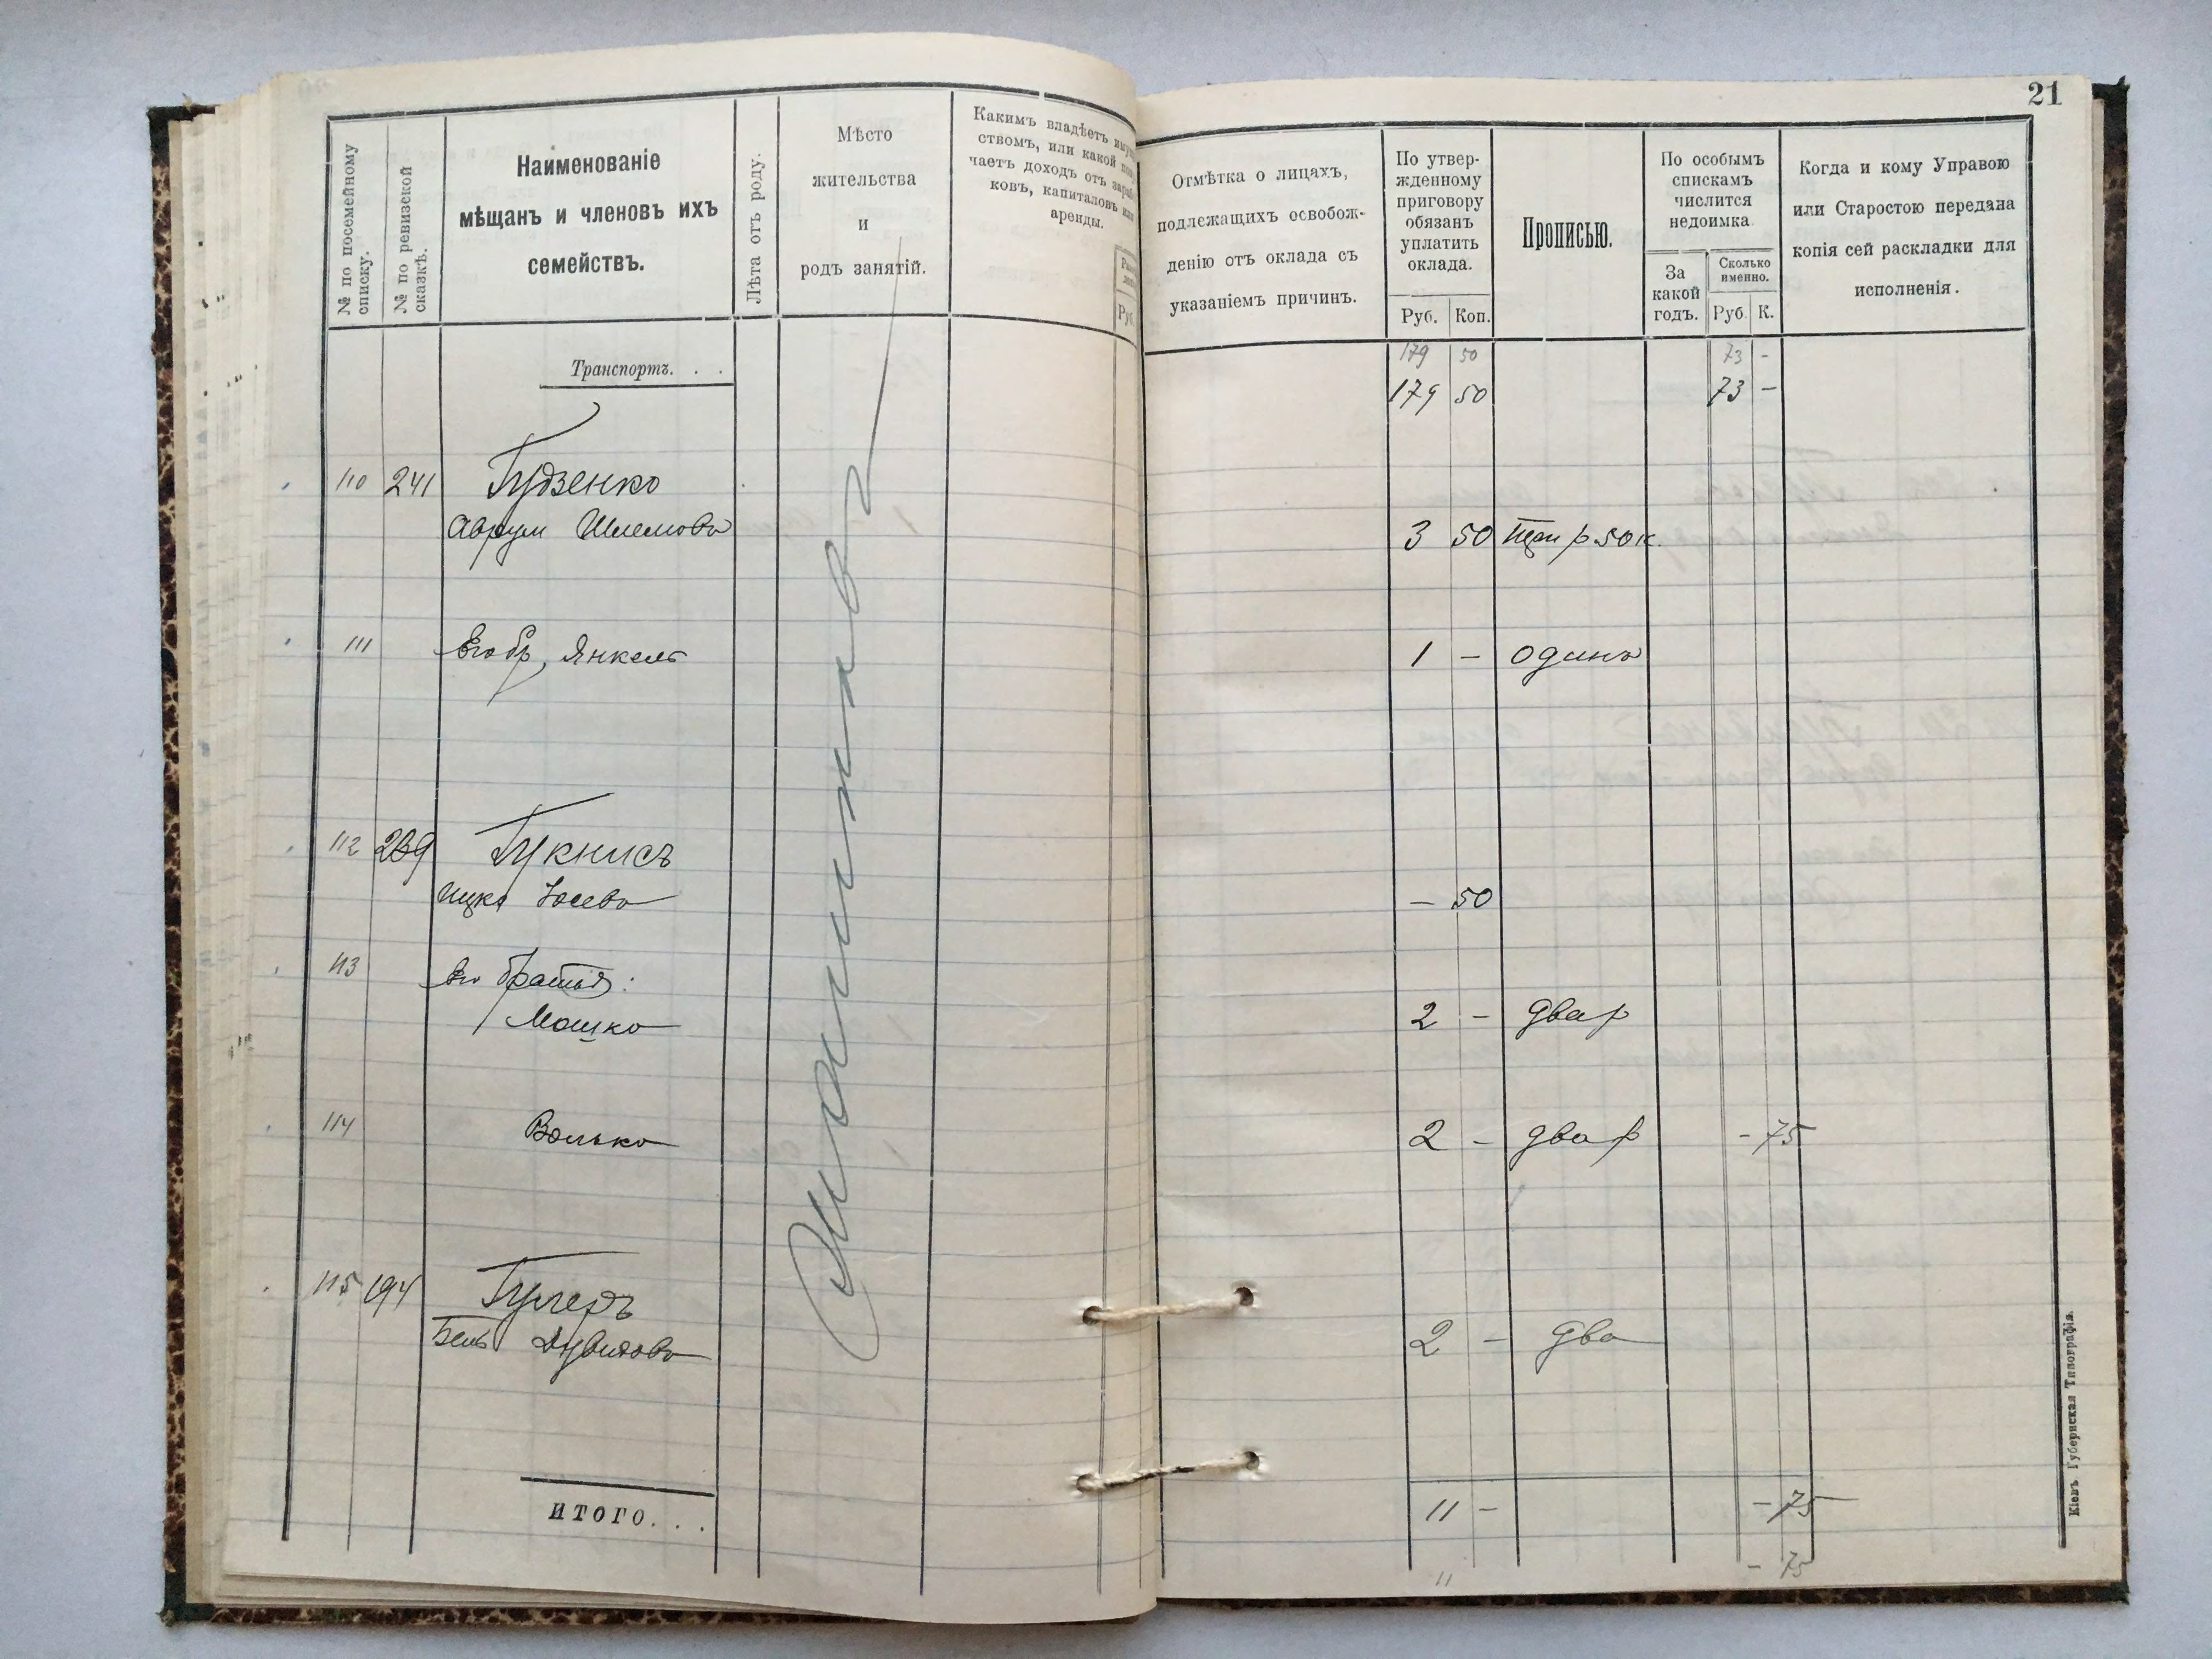 21
№ по посемейному списку.
№ по ревизской сказкѣ.
Наименованіе
мѣщанъ и членовъ ихъ
семействъ.
Лѣта отъ роду.
Мѣсто
жительства
и
родъ занятій.
Какимъ владѣетъ
ствомъ, или какой
чаетъ доходъ отъ
ковъ, капиталовъ
аренды.
Руб.
Отмѣтка о лицахъ,
подлежащихъ освобож-
денію отъ оклада съ
указаніемъ причинъ.
По утвер-
жденному
приговору
обязанъ
уплатить
оклада.
Руб. Коп.
Прописью.
По особымъ
спискамъ
числится
недоимка
За
какой
годъ.
Сколько
именно.
Руб. К.
Когда и кому Управою
или Старостою передана
копія сей раскладки для
исполненія.
179 50 73 -
Транспортъ. . .
179 50 73 -
110 241 Гудзенко
Аврум Шлемовъ 3 50 три р 50 к.
111 Его бр, Янкель 1 - одинъ
112 239 Гукнисъ
Ицко Іосевъ - 50
113 Его братья:
Мошко 2 - два р
114 Волько 2 - два р - 75
115 194 Гулеръ
Бень Дувидовъ 2 - два
ИТОГО. . . 11 - - 75
11 - 75
Кіевъ. Губернская Типографія.